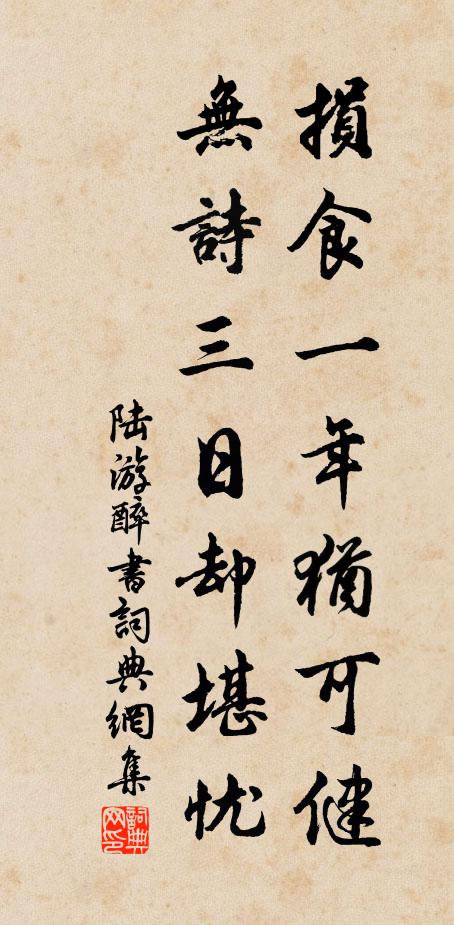 損食一年猶可健
無詩三日却堪忧
陆游醉書詞典網集
詞典网印